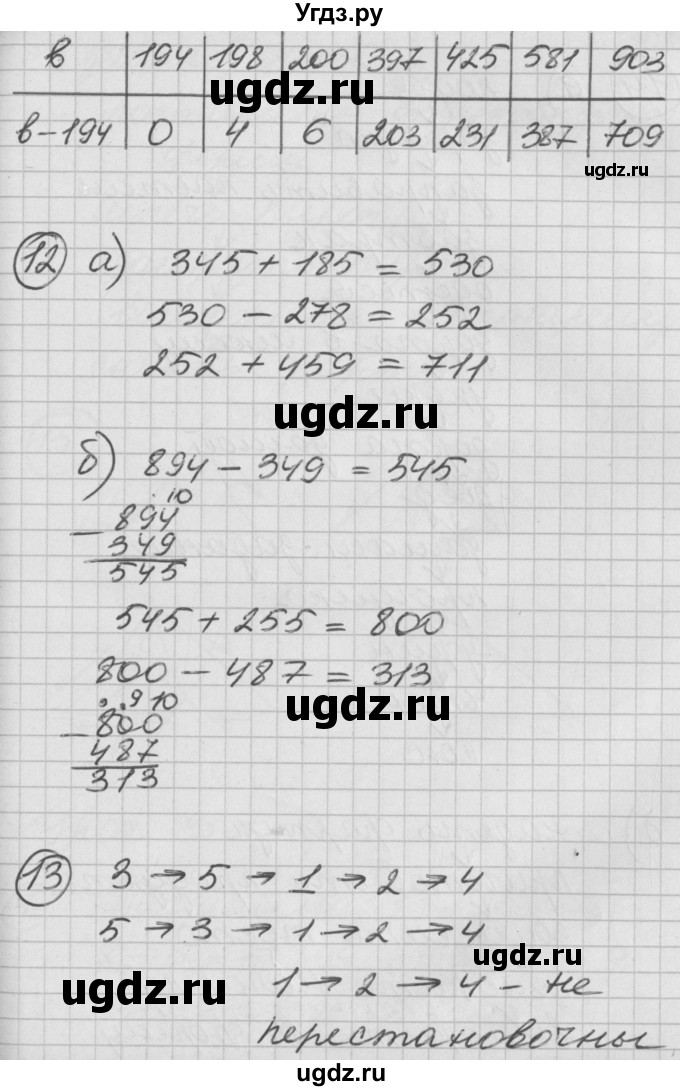 Угдз.ру
в | 194 | 198 | 200 | 397 | 425 | 581 | 903
ugdz.ru
в-194 | 0 | 4 | 6 | 203 | 231 | 387 | 709
ugdz.ru
12 а) 345 + 185 = 530
530 - 278 = 252
252 + 459 = 711
ugdz.ru
б) 894 - 349 = 545
. 10
- 894
349
545
545 + 255 = 800
800 - 487 = 313
ugdz.ru
. . 9 10
- 800
487
313
13 3 → 5 → 1 → 2 → 4
5 → 3 → 1 → 2 → 4
ugdz.ru
ugdz.ru
1 → 2 → 4 - не
перестановочны
ugdz.ru
Угдз.ру